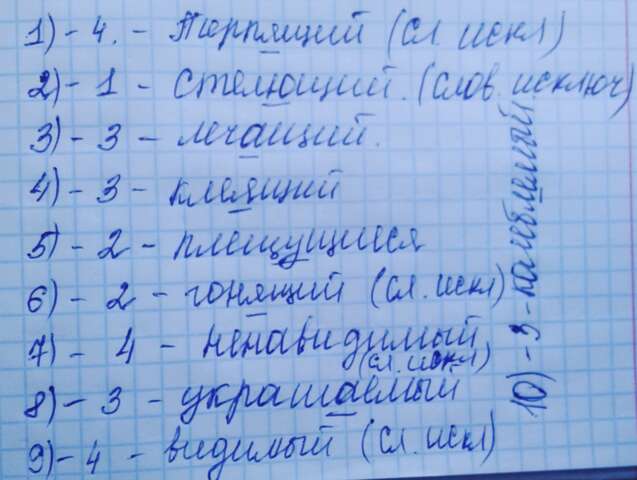 1) - 4. - Терпящий (сл. искл)
2) - 1 - стелющий. (слов. исключ)
3) - 3 - лечащий.
4) - 3 - клеящий
5) - 2 - плещущиеся
6) - 2 - гонящий (сл. искл)
7) - 4 - ненавидимый
(сл. искл)
8) - 3 - украшаемый
9) - 4 - видимый (сл. искл)
10) - 3 - колеблемый